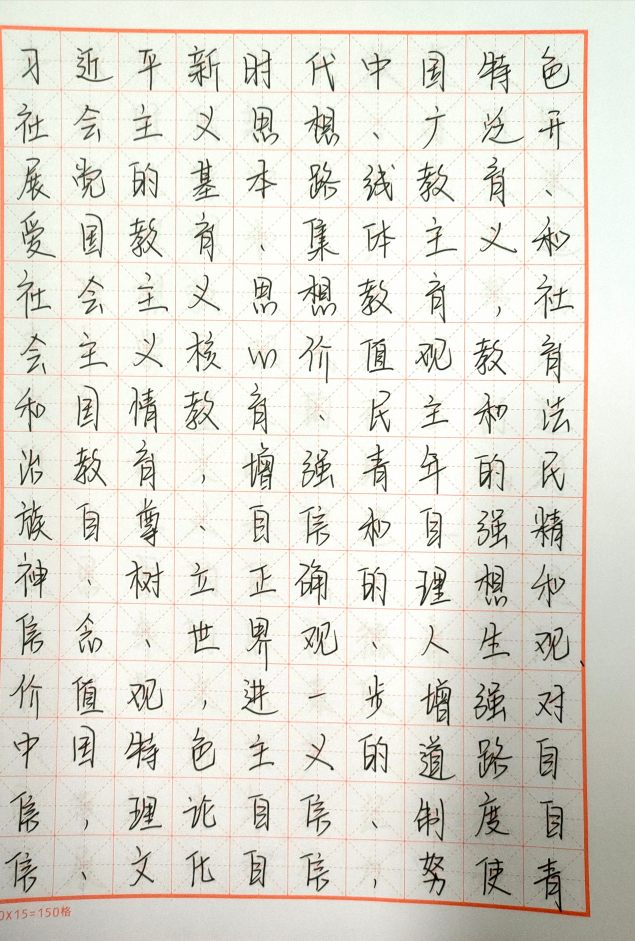 习近平新时代中国特色
社会主义思想、广泛开
展党的基本路线教育、
爱国教育、集体主义和
社会主义思想教育，社
会主义核心价值观教育
和国情教育、民主和法
治教育，增强青年的民
族自尊、自信和自强精
神、树立正确的理想和
信念、世界观、人生观、
价值观，进一步增强对
中国特色主义的道路自
信，理论自信、制度自
信、文化自信，努使青
0X15=150格